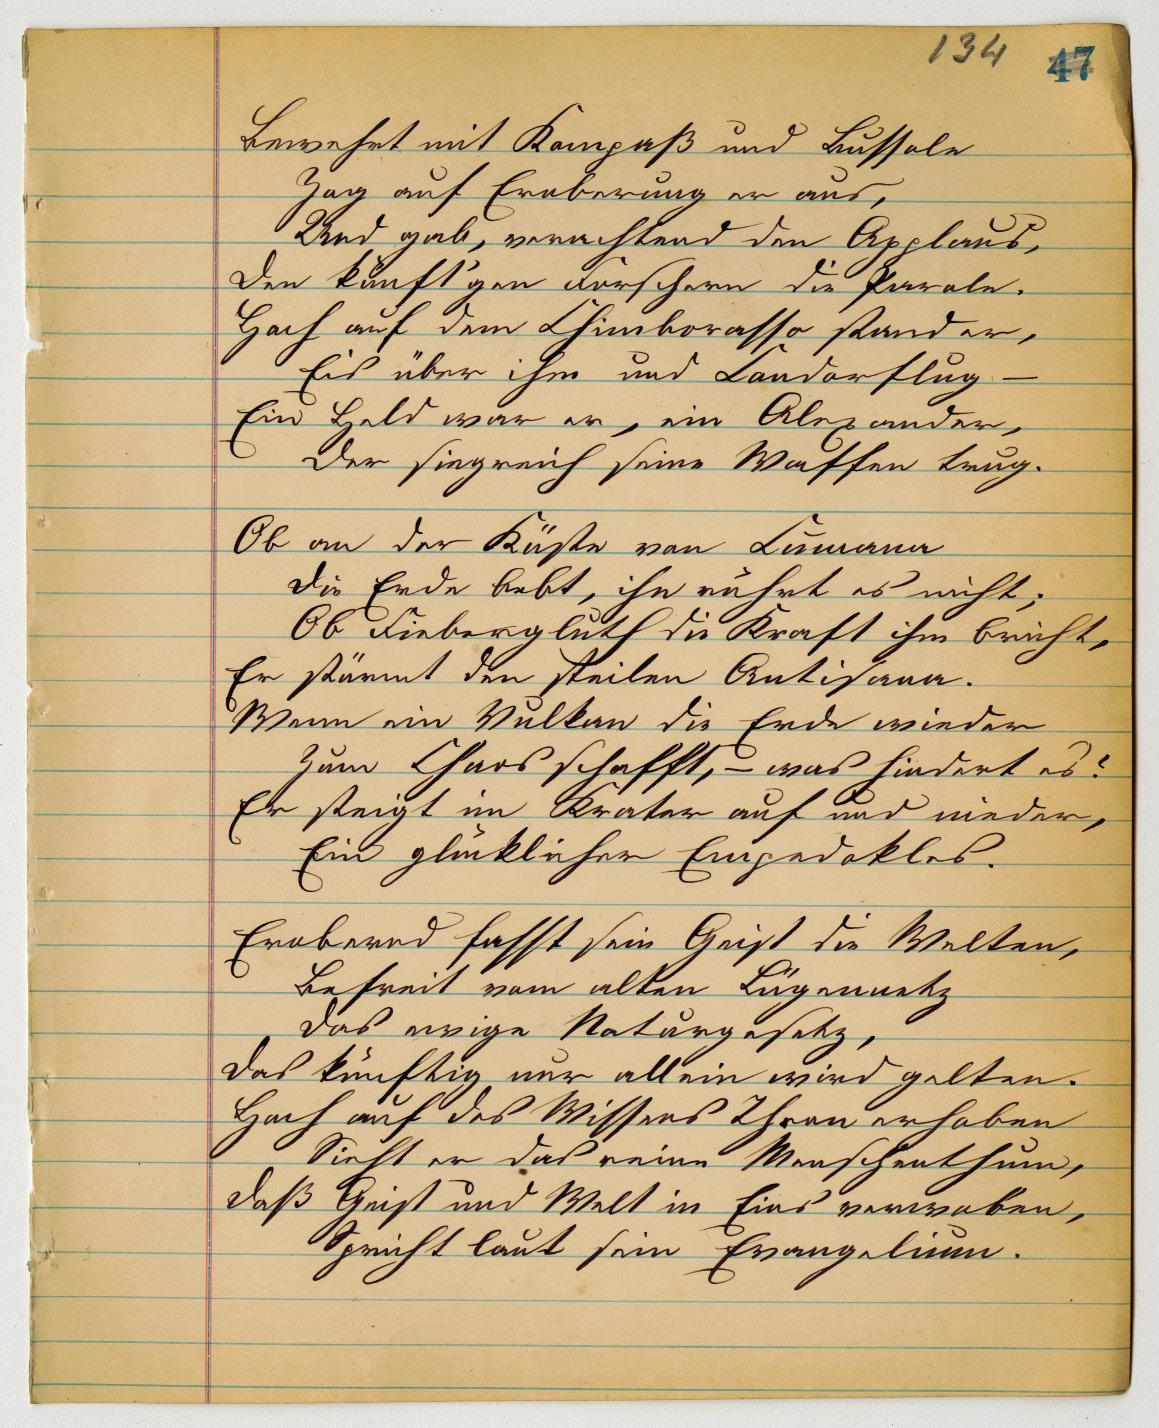 134 47
Bewehrt mit Kompaß und Bussole
Zog auf Eroberung er aus,
Und gab, verachtend den Applaus,
Den künft'gen Forschern die Parole.
Hoch auf dem Chimborasso stand er,
Eis über ihm und Condorflug –
Ein Held war er, ein Alexander,
Der siegreich seine Waffen trug.
Ob an der Küste von Cumana
Die Erde bebt, ihn rührt es nicht;
Ob Fiebergluth die Kraft ihm bricht,
Er stürmt den steilen Antisana.
Wenn ein Vulkan die Erde wieder
Zum Chaos schafft, – was hindert es?
Er steigt im Krater auf und nieder,
Ein glücklicher Empedokles.
Erobernd fasst sein Geist die Welten,
Befreit vom alten Lügennetz
Das ewige Naturgesetz,
Das künftig nur allein wird gelten.
Hoch auf des Wissens Thron erhoben
Sieht er das reine Menschenthum,
Daß Geist und Welt in Eins verwoben,
Spricht laut sein Evangelium.